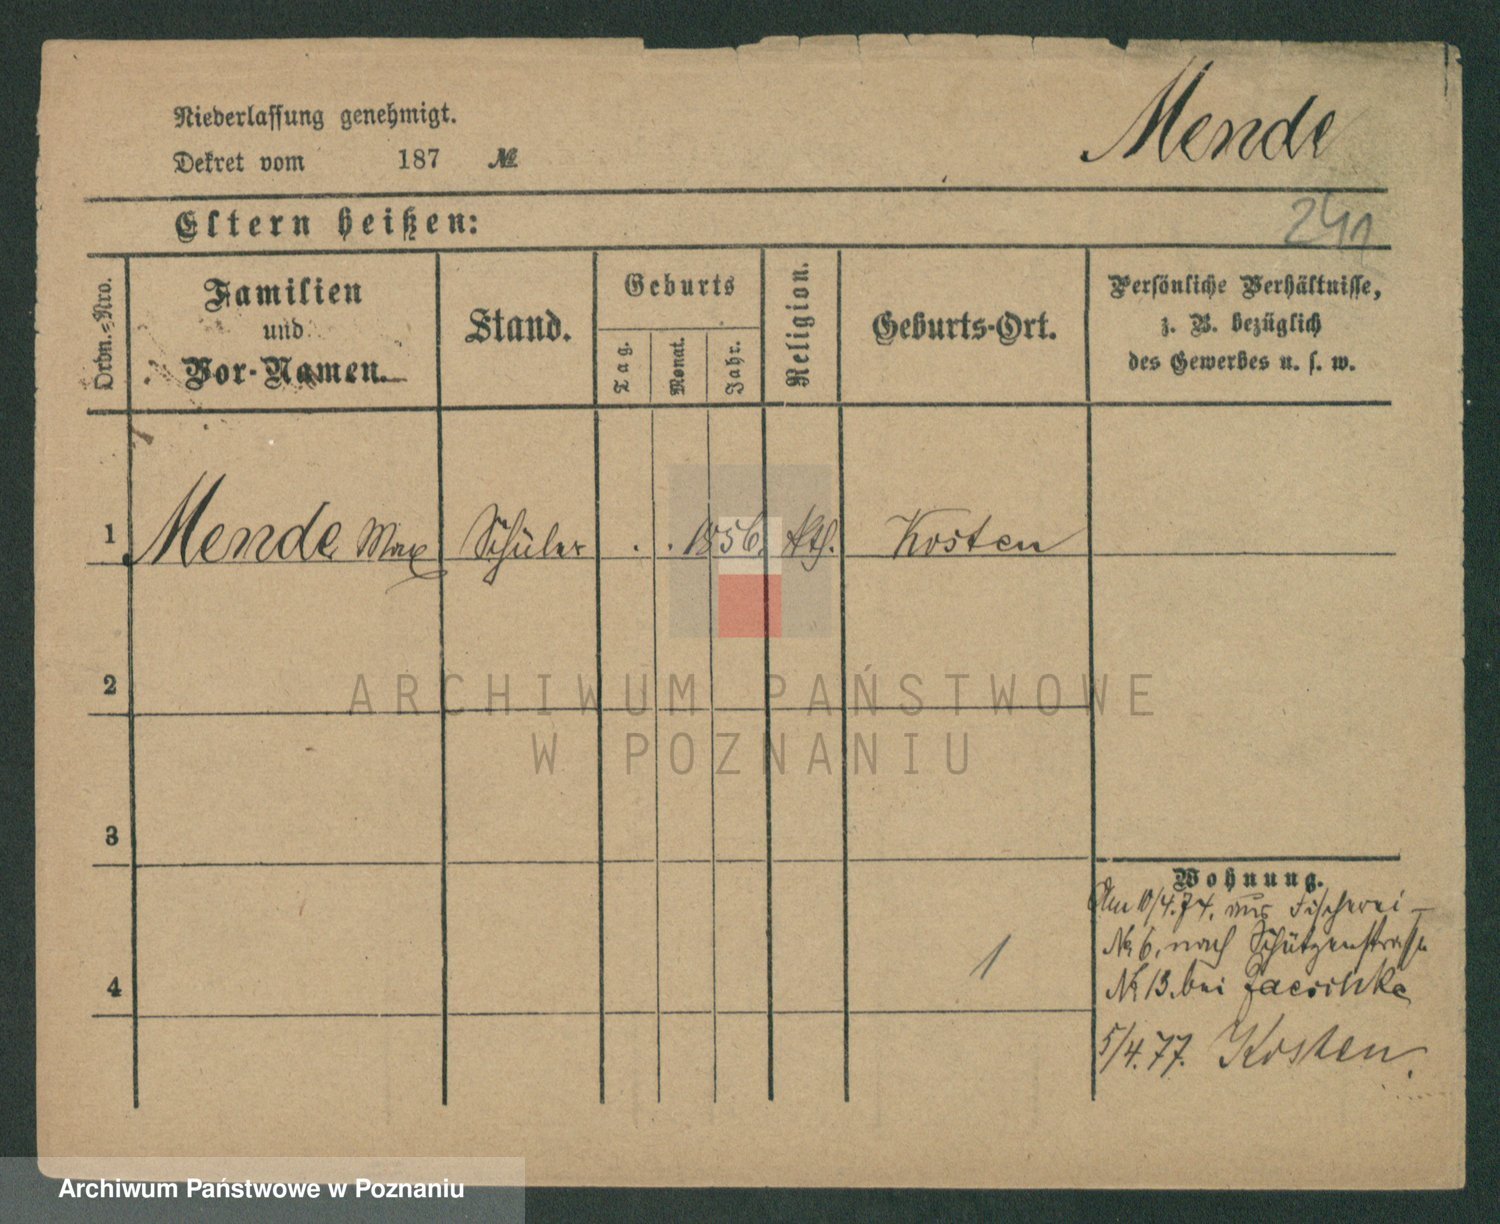 Niederlassung genehmigt.
Dekret vom 187 №
Mende
241
Eltern heißen:
Ordn.-Nro.
Familien
und
Vor-Namen.
Stand.
Geburts
Tag.
Monat.
Jahr.
Religion.
Geburts-Ort.
Persönliche Verhältnisse,
z. B. bezüglich
des Gewerbes u. s. w.
1 Mende Max Schüler . . 1856, kth. Kosten
2
3
4
1
Wohnung.
Am 10/4.74. aus Fischerei
№ 6, nach Schützenstrasse
№ 13. bei Jaeschke
5/4.77. Kosten.
ARCHIWUM PAŃSTWOWE
W POZNANIU
Archiwum Państwowe w Poznaniu